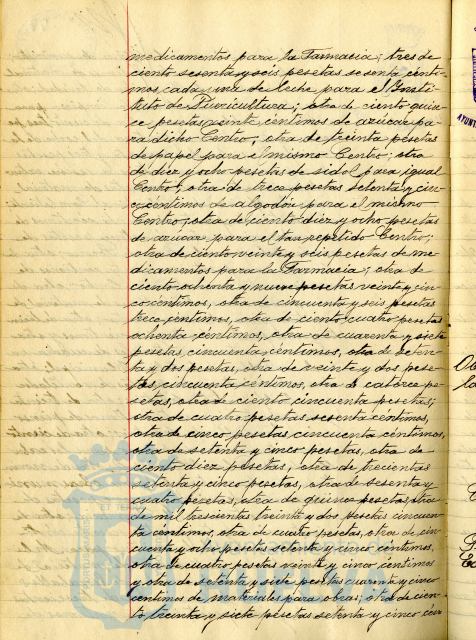 medicamentos para la Farmacia; tres de
ciento sesenta y seis pesetas sesenta cénti-
mos cada una de leche para el Insti-
tuto de Puericultura; otra de ciento quin-
ce pesetas veinte céntimos de azúcar pa-
ra dicho Centro; otra de treinta pesetas
de papel para el mismo Centro; otra
de diez y ocho pesetas de sidol para igual
Centro; otra de trece pesetas setenta y cin-
co céntimos de algodón para el mismo
Centro; otra de ciento diez y ocho pesetas
de azúcar para el tan repetido Centro;
otra de ciento veinte y seis pesetas de me-
dicamentos para la Farmacia; otra de
ciento ochenta y nueve pesetas veinte y cin-
co céntimos, otra de cincuenta y seis pesetas
trece céntimos, otra de ciento cuatro pesetas
ochenta céntimos, otra de cuarenta y siete
pesetas, cincuenta céntimos, otra de seten-
ta y dos pesetas, otra de veinte y dos pese-
tas, cincuenta céntimos, otra de catorce pe-
setas, otra de ciento cincuenta pesetas;
otra de cuatro pesetas sesenta céntimos,
otra de cinco pesetas, cincuenta céntimos,
otra de setenta y cinco pesetas, otra de
ciento diez pesetas, otra de trecientas
setenta y cinco pesetas, otra de sesenta y
cuatro pesetas, otra de quince pesetas, otra
de mil trescientas treinta y dos pesetas cincuen-
ta céntimos, otra de cuatro pesetas, otra de cin-
cuenta y ocho pesetas setenta y cinco céntimos,
otra de cuatro pesetas veinte y cinco céntimos
y otra de setenta y siete pesetas cuarenta y cinco
céntimos de materiales para obras; otra de cien-
to, treinta y siete pesetas setenta y cinco cén